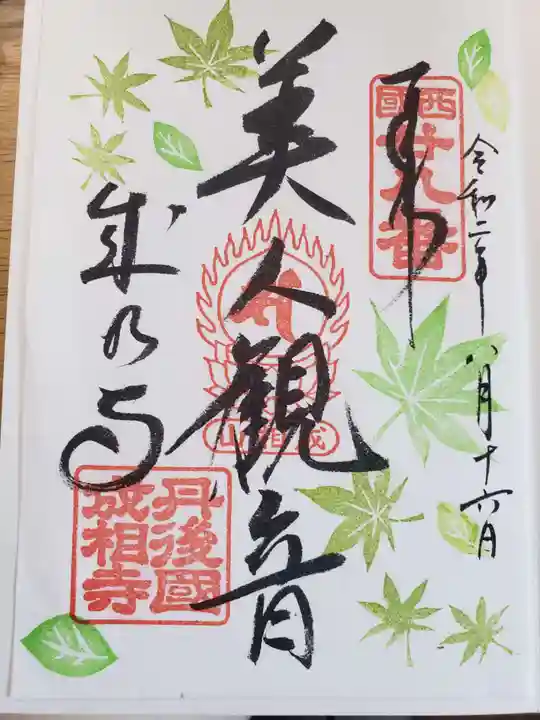 令和二年八月十六日
奉拝
西国
廿八番
美人観音
成相山
成相寺
丹後國
成相寺